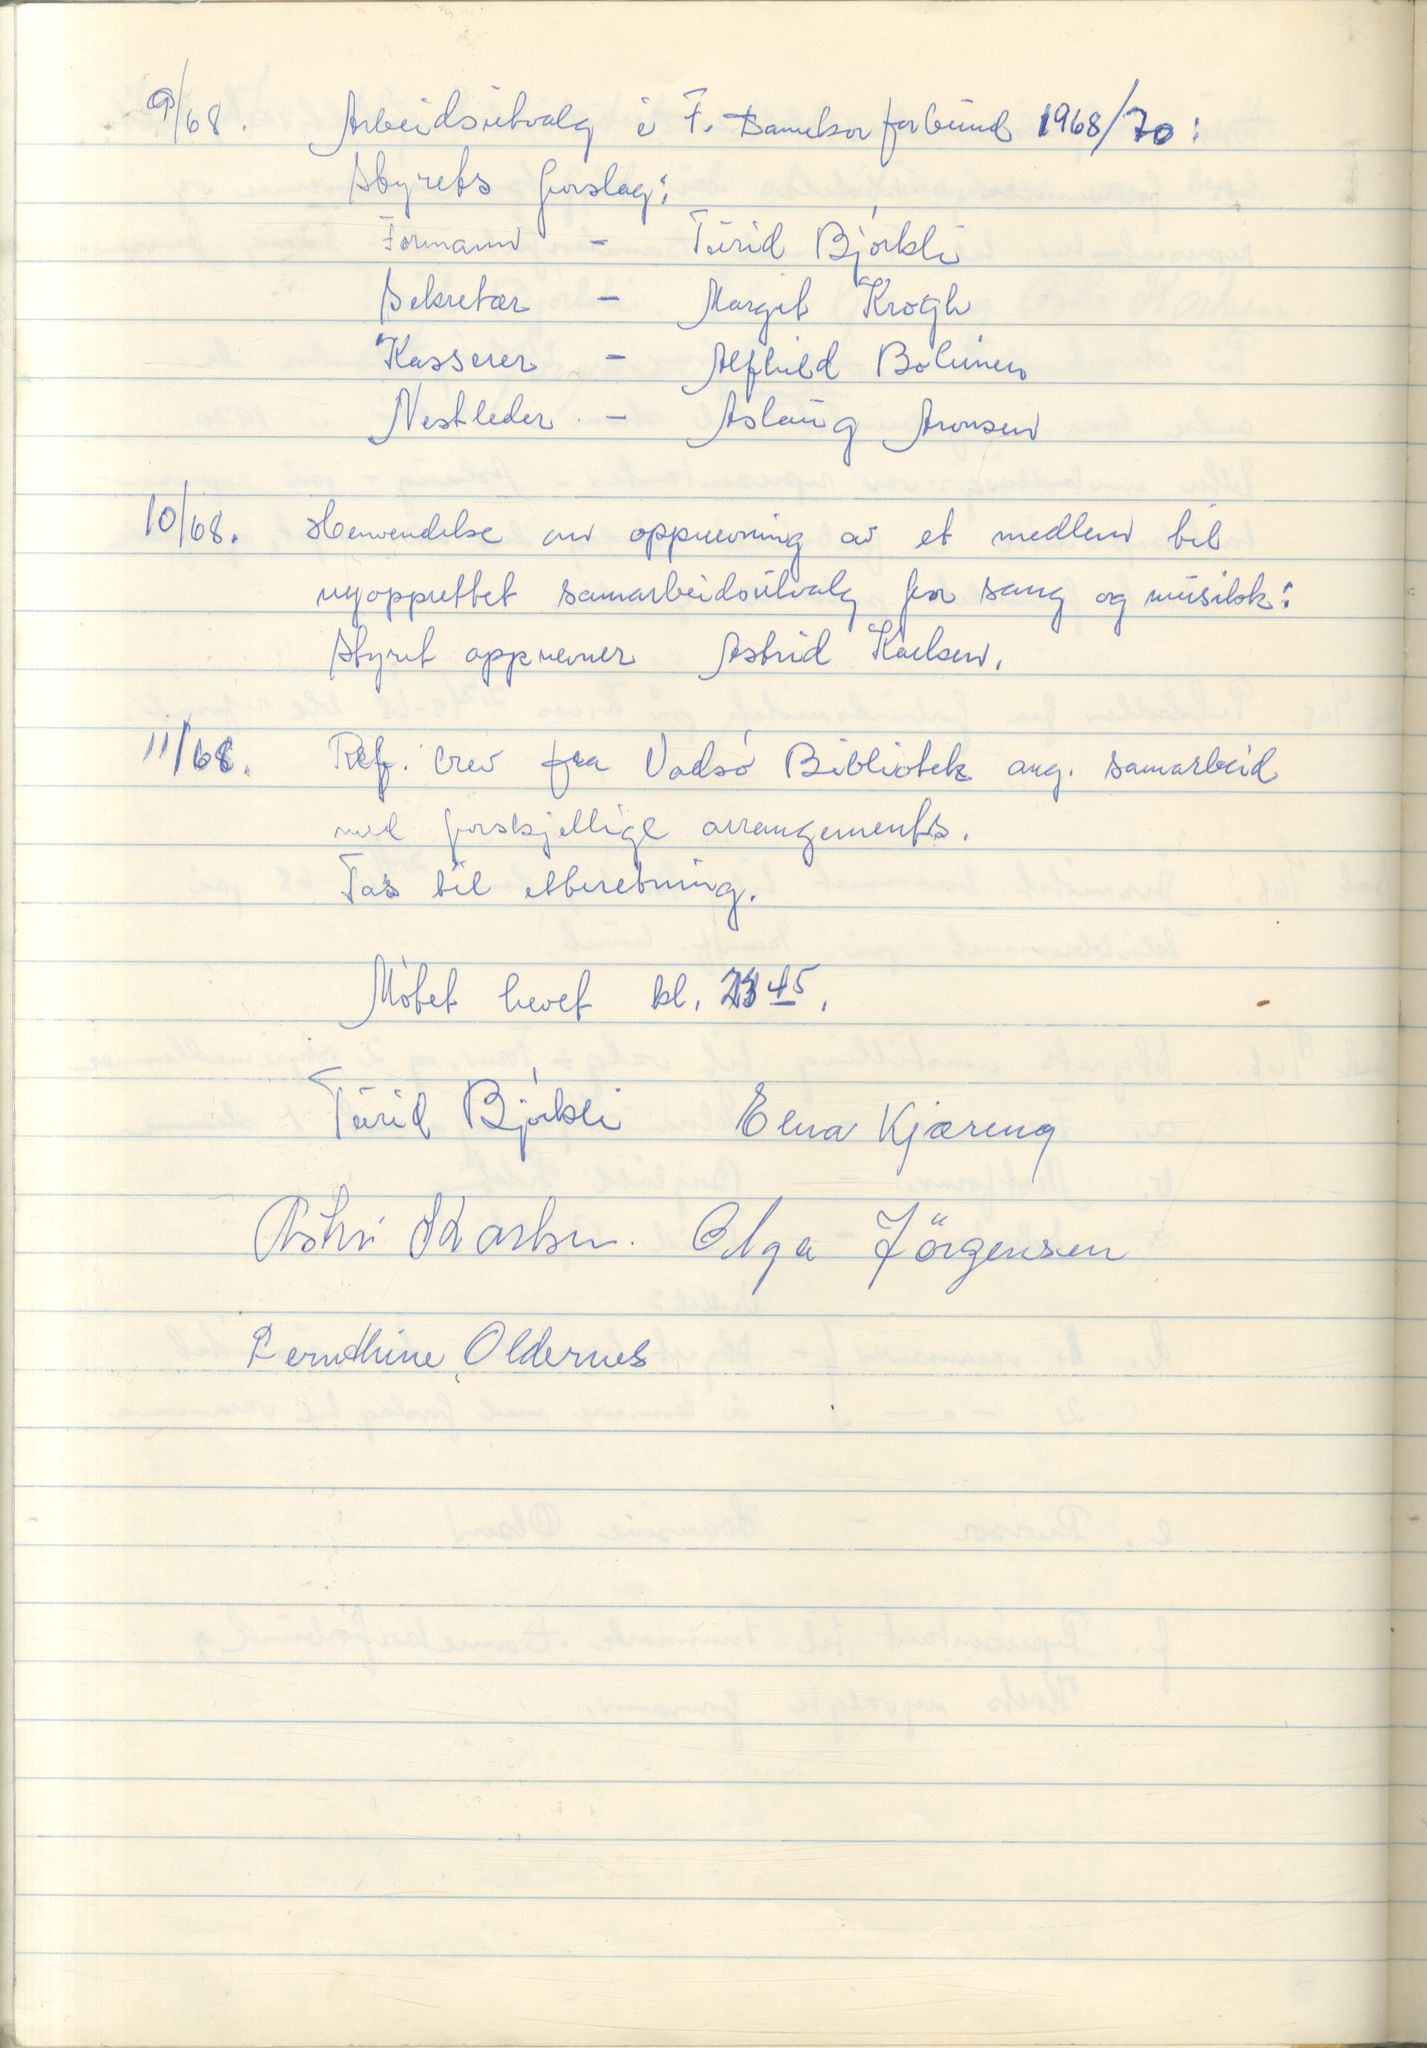 9/68. Arbeidsutvalg i F. Damekorforbund 1968/70:
Styrets forslag:
Formann - Turid Bjørkli
Sekretær - Margit Krogh
Kasserer - Alfhild Bolinen
Nestleder - Aslaug Aronsen
10/68. Henvendelse om oppnevning av et medlem til
nyopprettet samarbeidsutvalg for sang og musikk:
Styret oppnevner Astrid Karlsen.
11/68. Ref. brev fra Vadsø Bibliotek ang. samarbeid
med forskjellige arrangements.
Tas til etteretning.
Møtet hevet kl. 23 45.
Turid Bjørkli Elna Kjæreng
Astri Karlsen. Olga Jörgensen
Bernthine Oldernes